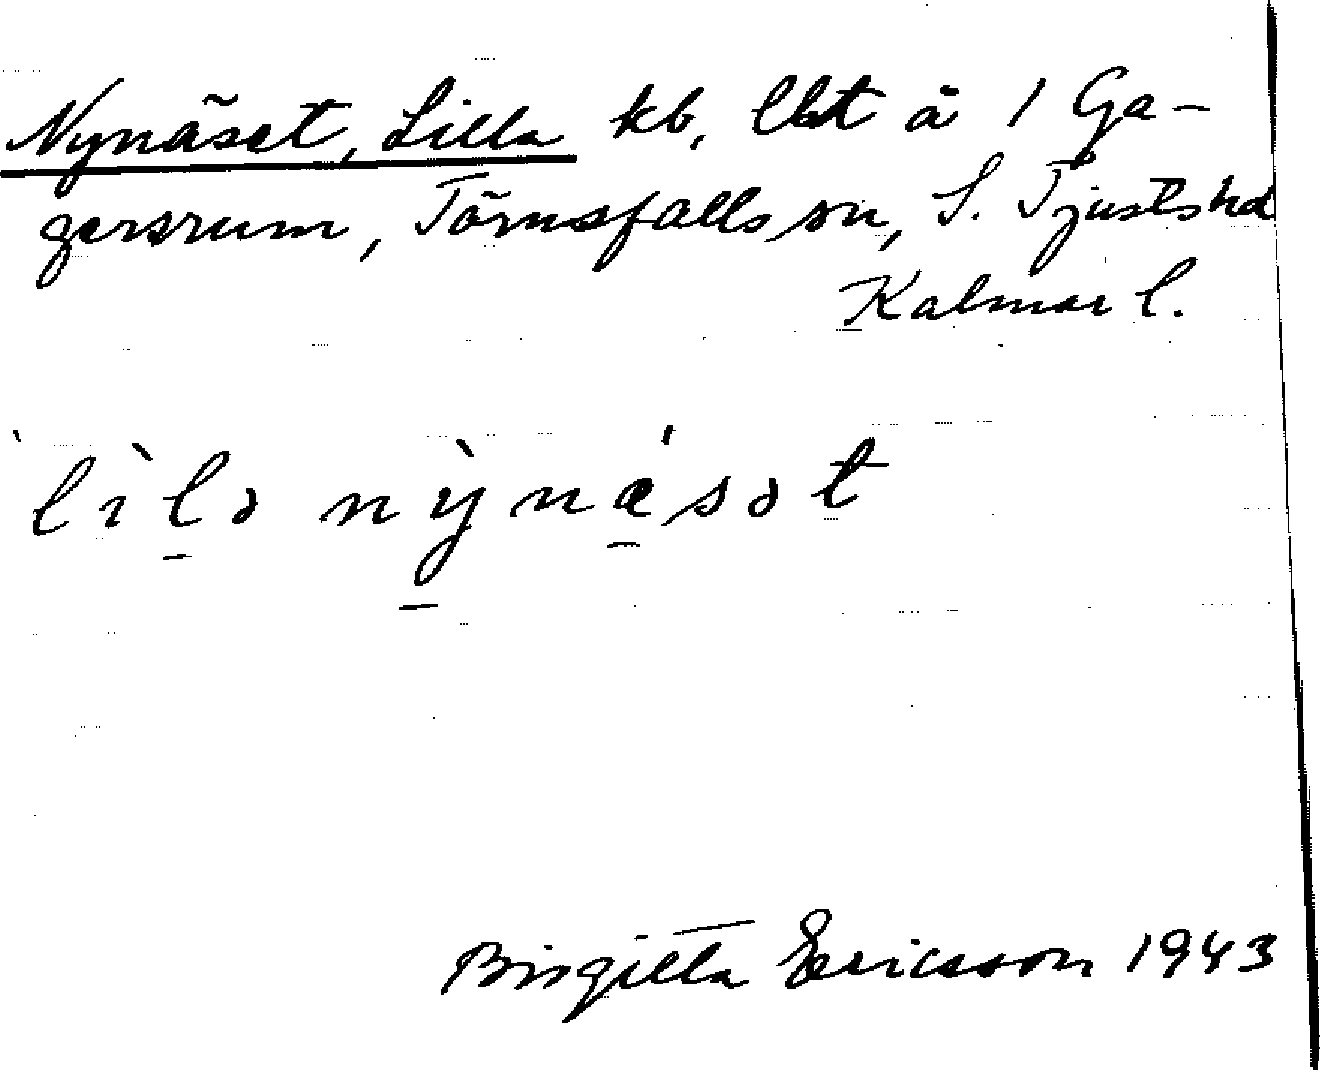 Nynäset, Lilla kb, lbt å 1 Ga-
gersrum, Törnsfalls sn, S. Tjusts hd
Kalmar l.
lìlə nỳnǽsət
Birgitta Ericsson 1943